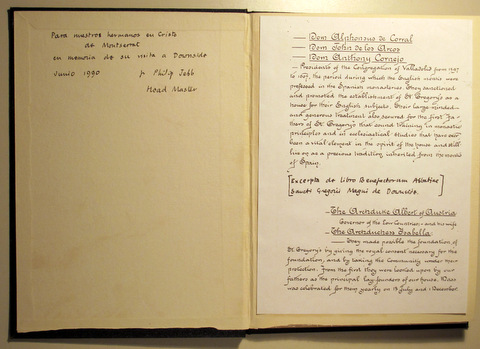 Para nuestros hermanos en Cristo
de Montserrat
en memoria de su visita a Downside
Junio 1990 p Philip Jebb
Head Master
— Dom Alphonsus de Corral
— Dom John de los Arcos
— Dom Anthony Cornejo
— Presidents of the Congregation of Valladolid from 1597
to 1607, the period during which the English monks were
professed in the Spanish monasteries. They sanctioned
and promoted the establishment of St. Gregory's as a
house for their English subjects. Their large minded
and generous treatment also secured for the first Fa-
thers of St. Gregory's that sound training in monastic
principles and in ecclesiastical studies that has ever
been a vital element in the spirit of the house and still
lives on as a precious tradition inherited from the monks
of Spain.
[Excerpta de Libro Benefactorum Abbatiae
Sancti Gregorii Magni de Downside.
— The Archduke Albert of Austria
Governor of the Low Countries: and his wife
— The Archduchess Isabella
— They made possible the foundation of
St. Gregory's by giving the royal consent necessary for the
foundation, and by taking the Community under their
protection. From the first they were looked upon by our
fathers as the principal lay founders of our house. Mass
was celebrated for them yearly on 13 July and 1 December.